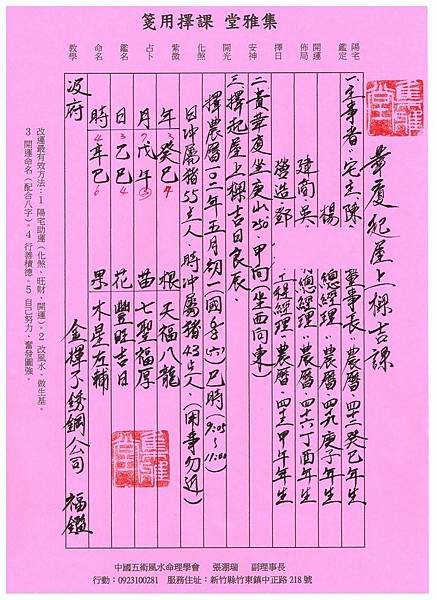 集雅堂 課擇用箋
陽宅
鑑定
開運
佈局
擇日
安神
開光
化煞
紫微
占卜
鑑名
命名
教學
集雅堂
華廈起屋上樑吉課
一、主事者：宅主：陳 董事長：農曆：四十二癸巳年生
楊 總經理：農曆：四十九庚子年生
建商：吳 總經理：農曆：四十六丁酉年生
營造：鄧 農曆：四十三甲午年生
二、貴華廈坐庚山 甲向（坐西向東）
三、擇起屋上樑吉日良辰：
擇農曆一0二年五月初一（國 六）巳時（9:05～11:00）
日沖屬猪55占人、時沖屬猪43占人、（閑事勿近）
年 癸巳 根 天福八龍
月 戊午 苗 七聖福厚
日 己巳 花 豐旺吉日
時 辛巳 果 木星左輔
汶府 金 鋼公司 福鑑
集雅堂
改運最有效方法：1陽宅助運（化煞、旺財、開運）。2改風水、做生基。
3開運命名（配合八字）。4行善積德。5自己努力、奮發圖強。
中國五術風水命理學會 張潮瑞 副理事長
行動：0923100281 服務住址：新竹縣竹東鎮中正路218號